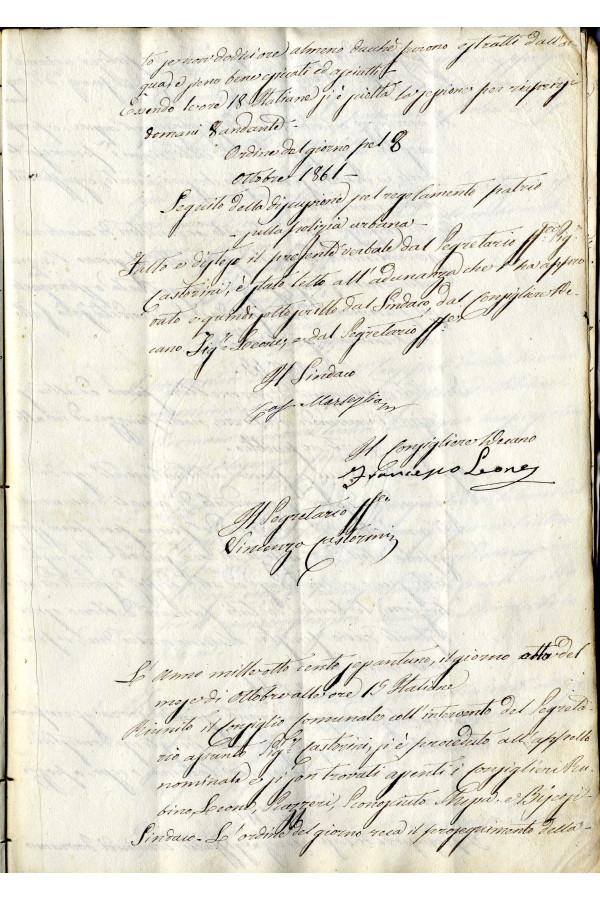 to se non dodici ore almeno dacchè furono estratti dall'ac
qua, e pena bene espicati ed asciutti
Essendo le ore 18 Italiane si è sciolta la sessione per riunirsi
domani 8 andante -
Ordine del giorno pel 8
Ottobre 1861 -
Seguito della discussione pel regolamento patrio
sulla polizia urbana -
Fatto e disteso il presente verbale dal Segretario ff. Sigr
Castorini, è stato letto all'adunanza che l'ha appro
vato e quindi sottoscritto dal Sindaco dal Consigliere De
cano Sigr Leone, e dal Segretario ff.
Il Sindaco
Marseglia
Il Consigliere Decano
Francesco Leone
Il Segretario ff.
Vincenzo Castorini
L'Anno mille otto cento sessantuno, il giorno otto del
mese di Ottobre alle ore 15 Italiane
Riunito il Consiglio comunale coll'intervento del Segreta
rio assunto Sigr Castorini, si è proceduto all'appello
nominale e si son trovati assenti i Consiglieri Ru
bino, Leone,
Sindaco - L'ordine del giorno reca il proseguimento della